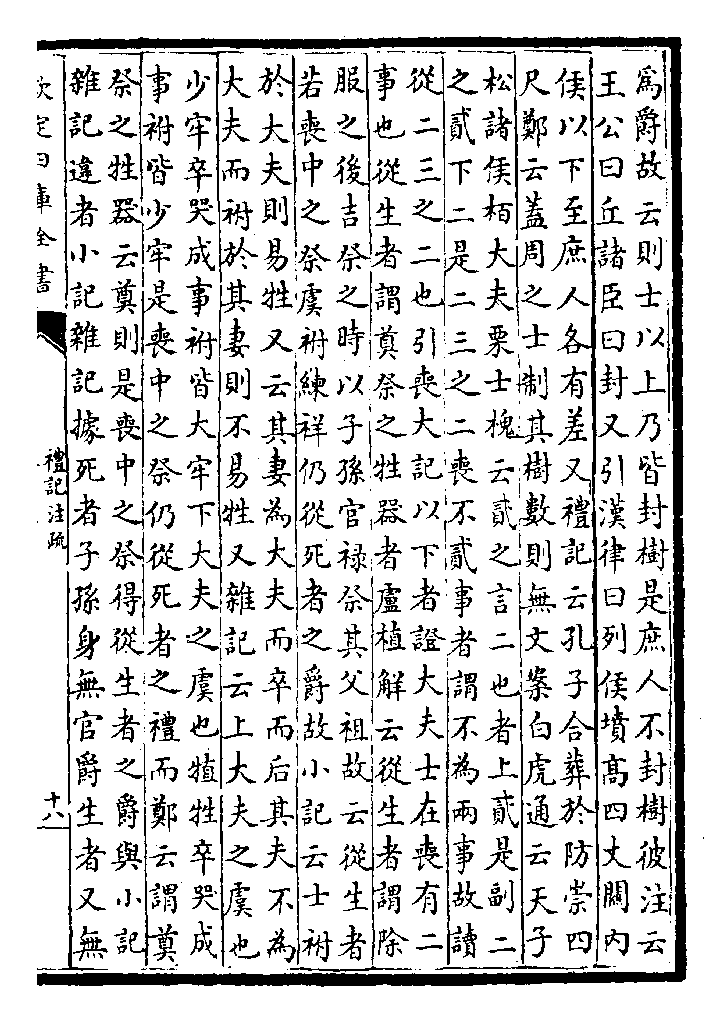 為爵故云則士以上乃皆封樹是庶人不封樹彼注云
王公曰丘諸臣曰封又引漢律曰列侯墳高四丈關内
侯以下至庶人各有差又禮記云孔子合葬於防崇四
尺鄭云蓋周之士制其樹數則無文案白虎通云天子
松諸侯栢大夫栗士槐云貳之言二也者上貳是副二
之貳下二是二三之二喪不貳事者謂不為兩事故讀
從二三之二也引喪大記以下者證大夫士在喪有二
事也從生者謂奠祭之牲器者盧植解云從生者謂除
服之後吉祭之時以子孫官禄祭其父祖故云從生者
若喪中之祭虞祔練祥仍從死者之爵故小記云士祔
於大夫則易牲又云其妻為大夫而卒而后其夫不為
大夫而祔於其妻則不易牲又雜記云上大夫之虞也
少牢卒哭成事祔皆大牢下大夫之虞也犆牲卒哭成
事祔皆少牢是喪中之祭仍從死者之禮而鄭云謂奠
祭之牲器云奠則是喪中之祭得從生者之爵與小記
雜記違者小記雜記據死者子孫身無官爵生者又無
欽定四庫全書
禮記注疏
十八